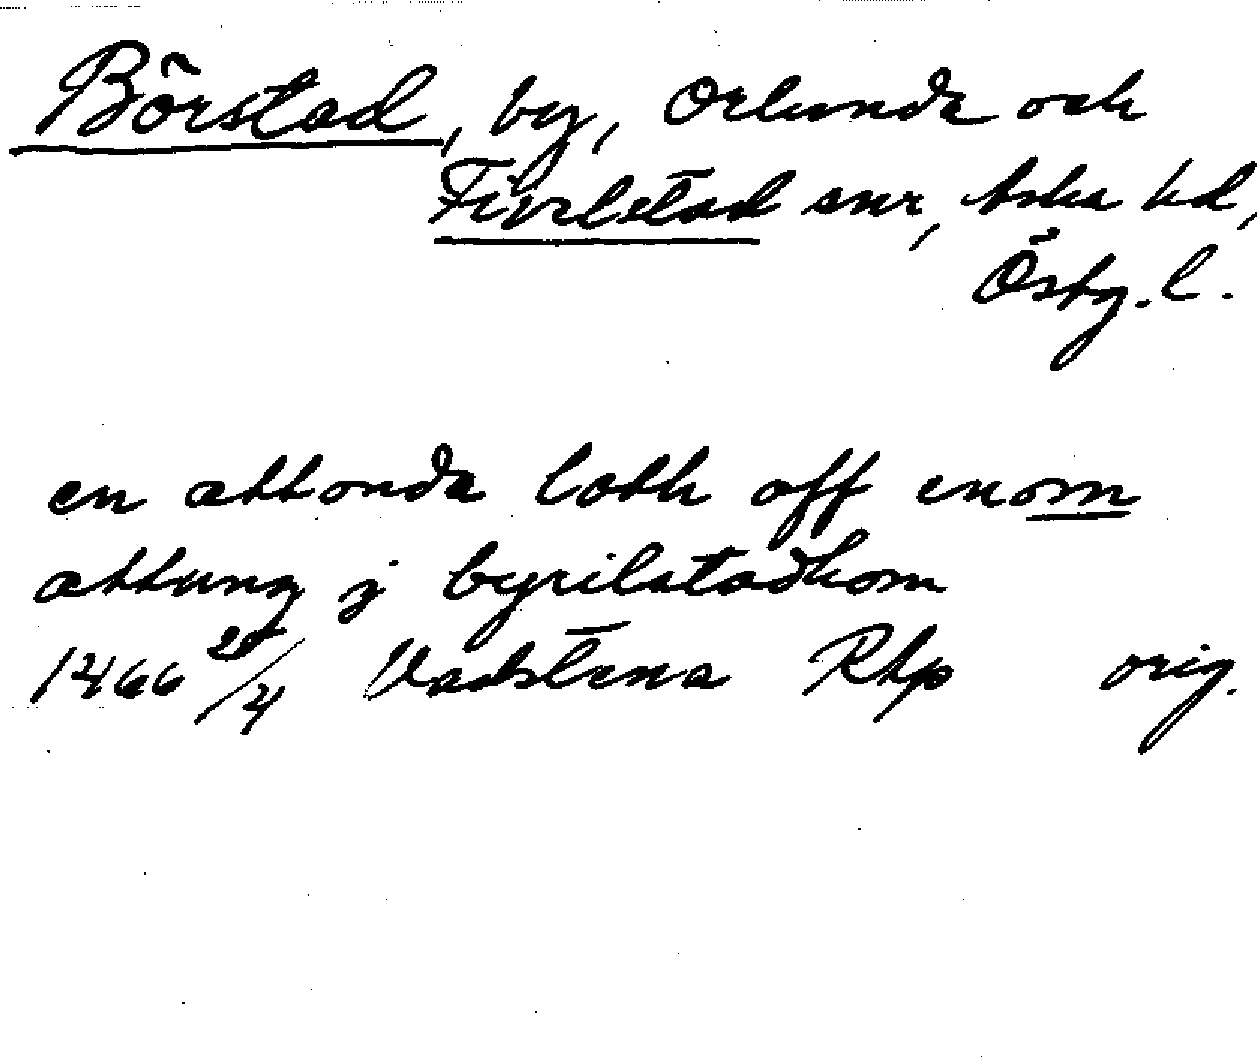 Börstad, by, Orlunda och
Fivelstad snr, Aska hd,
Östg. l.
en attonda loth off enom
attung j byrilstadhom
1466 20/4 Vadstena RAp orig.